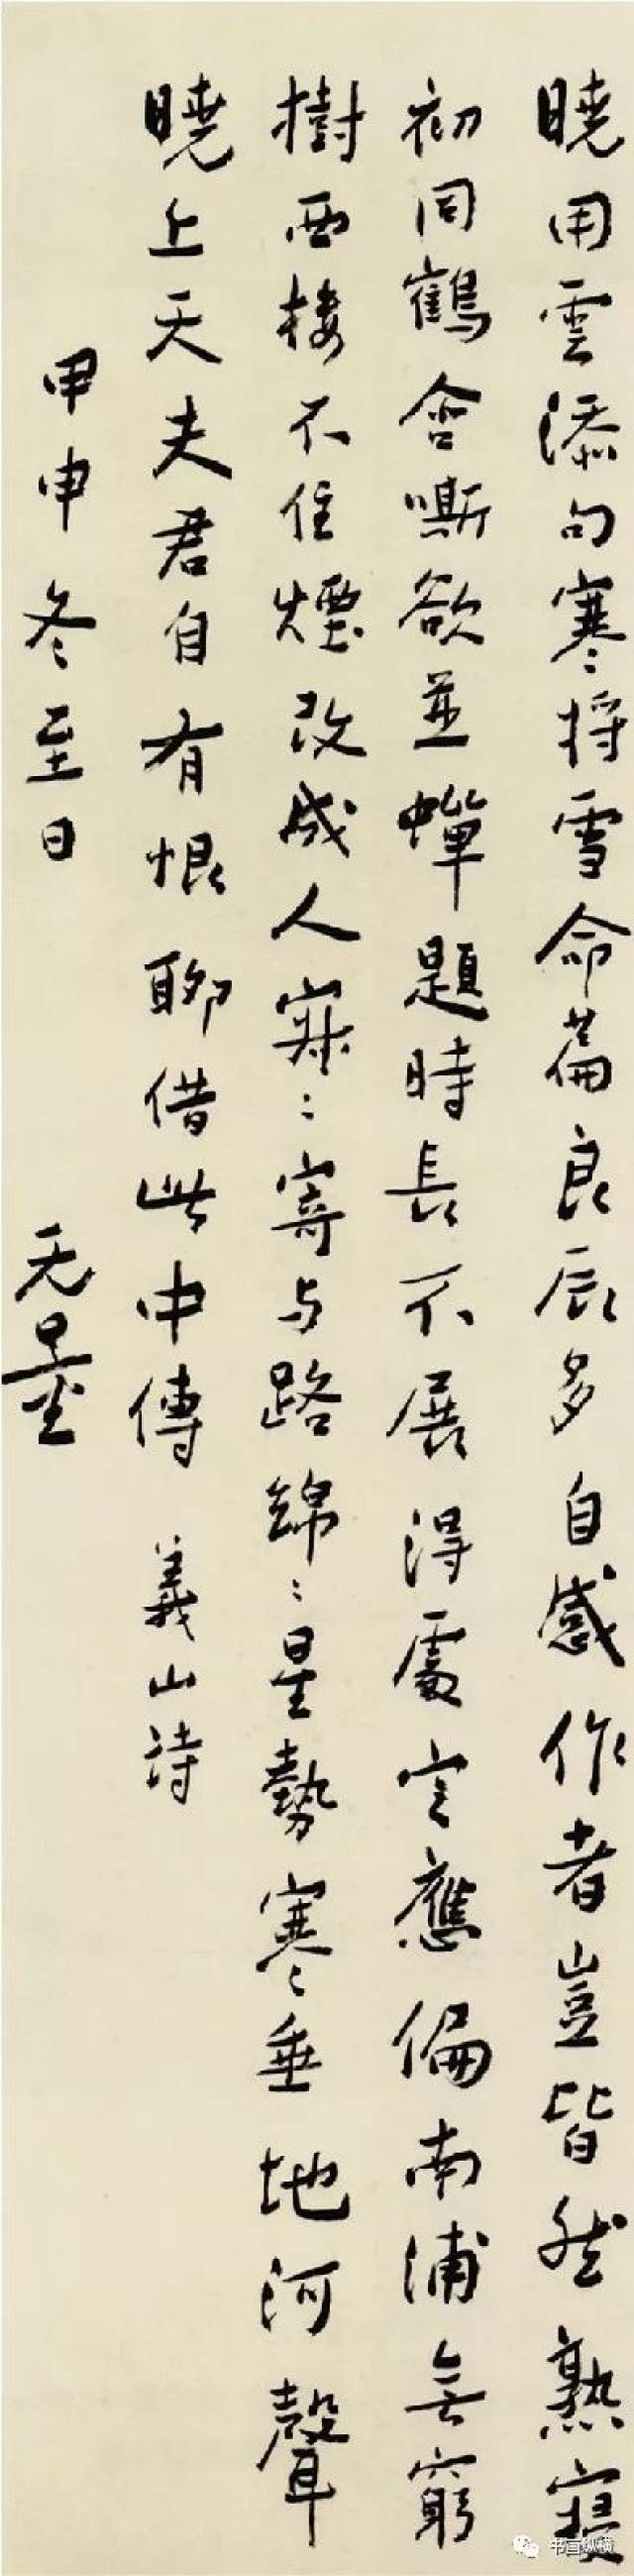 曉用雲添句寒將雪命篇良辰多自感作者豈皆然熟寢
初同鶴含嘶欲並蟬題時長不展得處定應偏南浦無窮
樹西樓不住煙改成人寂〻寄与路綿〻星勢寒垂地河聲
曉上天夫君自有恨聊借此中傳 義山詩
甲申冬至日 无量
书画纵横